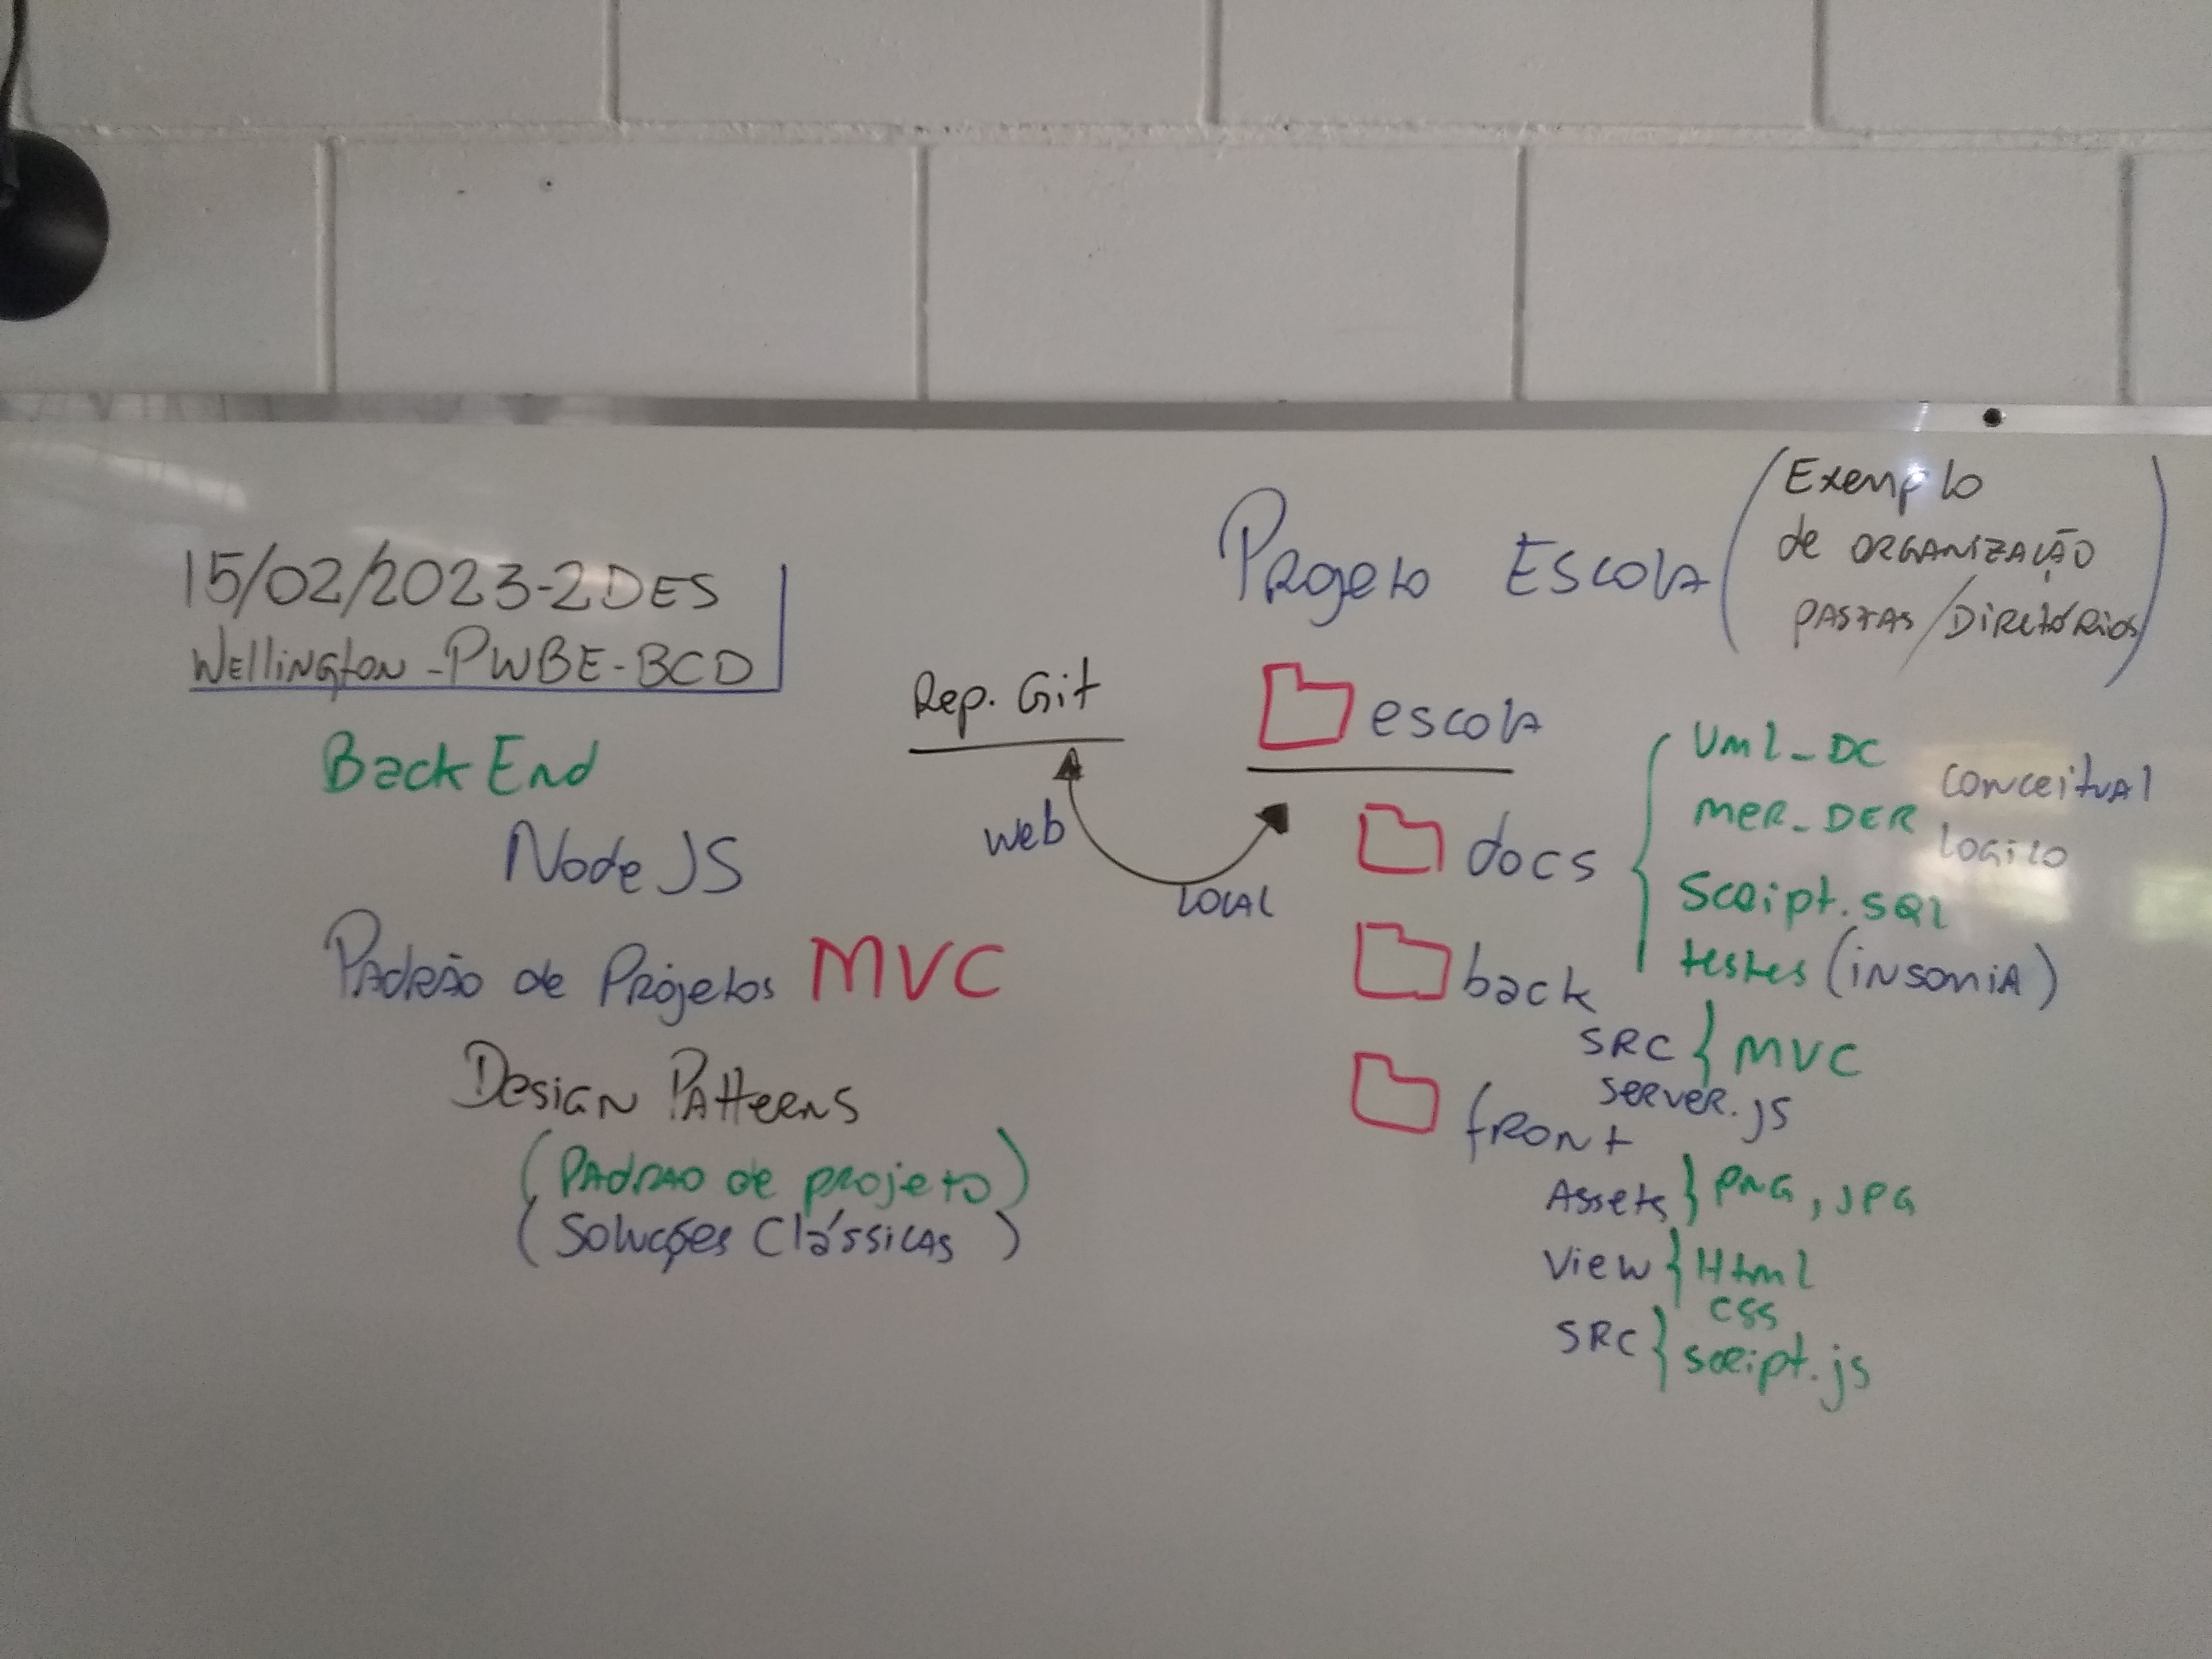 15/02/2023-2DES
Wellington-PWBE-BCD
Back End
Node JS
Padrão de Projetos MVC
Design Patterns
(Padrao de projeto)
(Soluções Clássicas)
Rep. Git
web
local
Projeto Escola (Exemplo
de organização
pastas/Diretórios)
escola
docs
Uml_DC
mer_DER conceitual
logico
Script.sql
testes (insomia)
back
src } MVC
server.js
front
Assets } PNG, JPG
View } Html
css
src } script.js